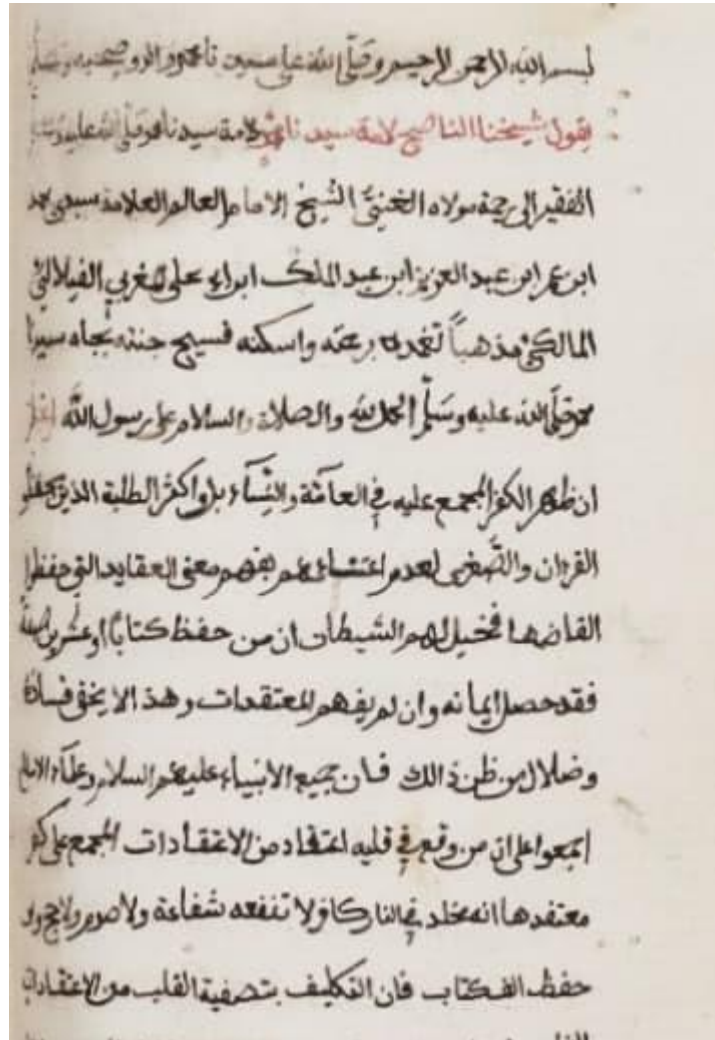 بسم الله الرحمن الرحيم وصلى الله على سيدنا محمد واله وصحبه وسلم
يقول شيخنا الناصح لامة سيدنا محمد لامة سيدنا محمد صلى الله عليه وسلم
الفقير الى رحمة مولاه الغني الشيخ الامام العالم العلامة سيدي محمد
ابن عمر ابن عبد العزيز ابن عبد الملك ابن المغربي الفيلالي
المالكي مذهباً تغمده برحمته واسكنه فسيح جنته بجاه سيدنا
محمد صلى الله عليه وسلم الحمد لله والصلاة والسلام على رسول الله
ان ظهر الكفر المجمع عليه في العامة والنساء بل واكثر الطلبة الذين
القران والصغرى لعدم اعتنائهم بفهم معنى العقايد التي حفظوا
الفاضها فخيل لهم الشيطان ان من حفظ كتاباً او عشرين
فقد حصل ايمانه وان لم يفهم المعتقدات وهذا لا يخفى فساده
وضلال من ظن ذالك فان جميع الانبياء عليهم السلام وعلماء
اجمعوا على ان من وقع في قلبه اعتقاد من الاعتقادات المجمع على كفر
معتقدها انه مخلد في النار كافر لا تنفعه شفاعة ولا صوم ولا حج ولا
حفظ الف كتاب فان التكليف بتصفية القلب من الاعتقادات